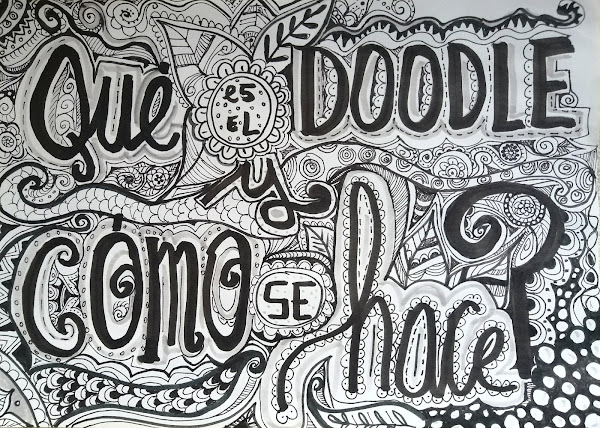 Qué es EL DOODLE
y
CÓMO SE hace?